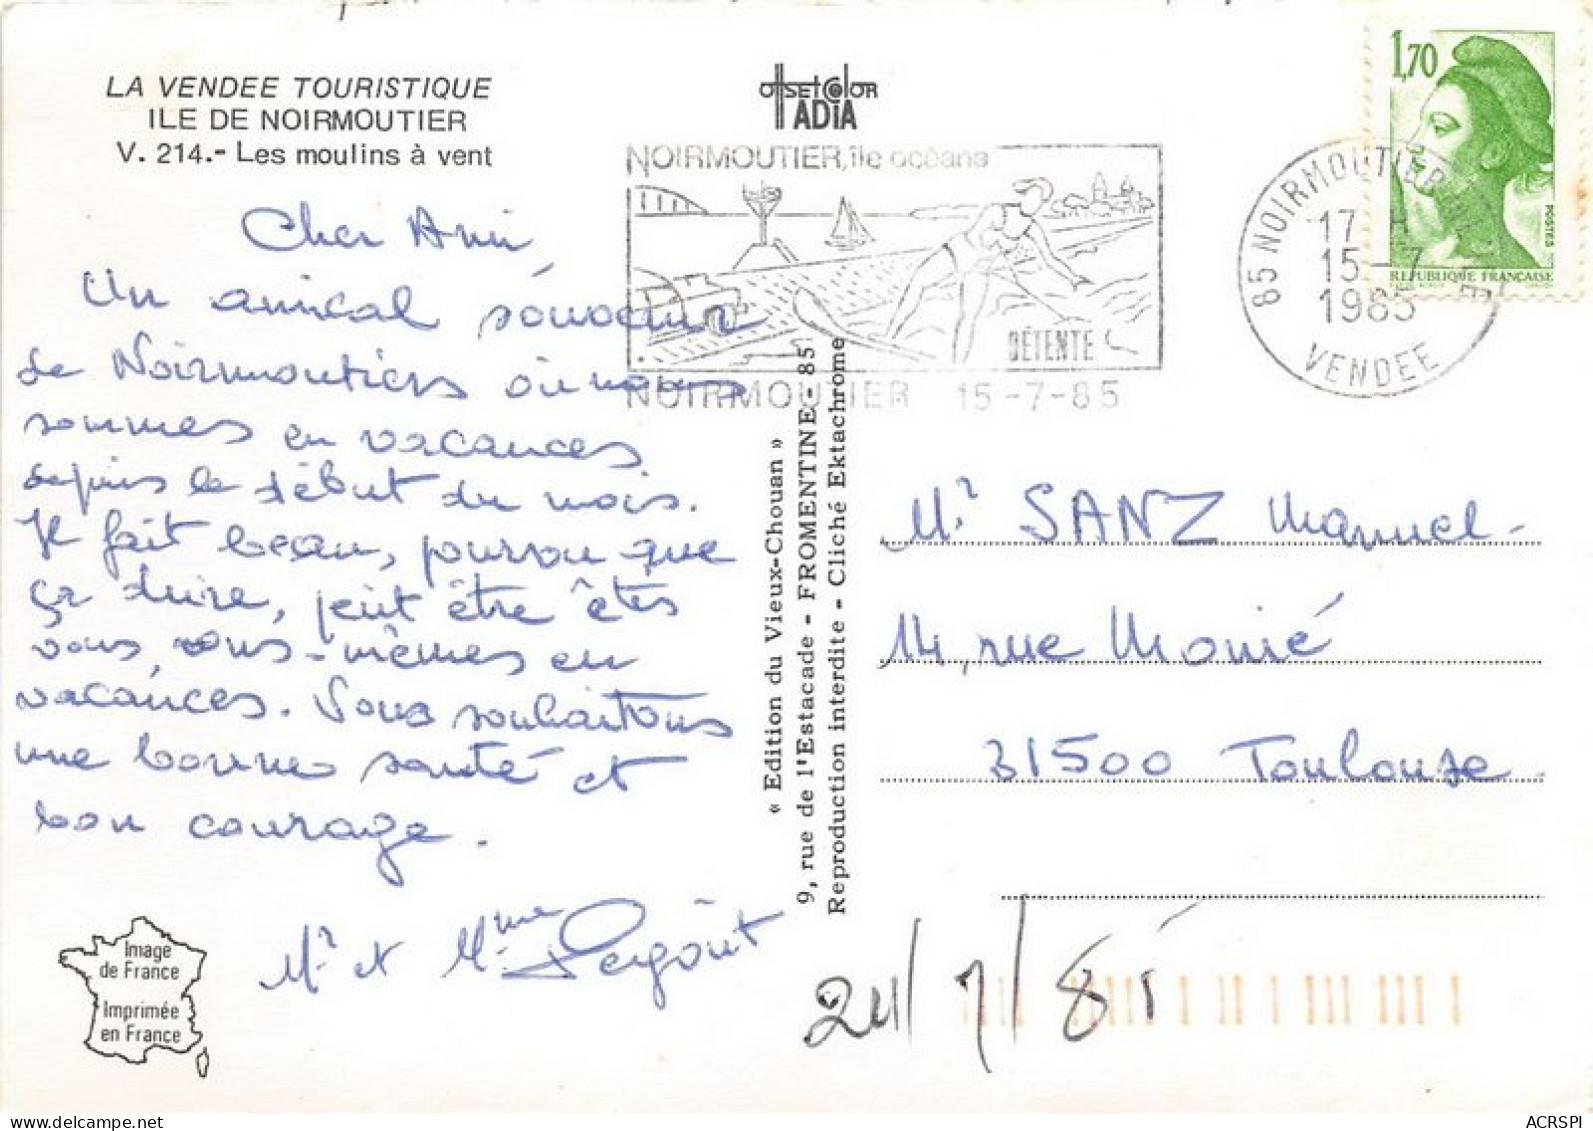 LA VENDEE TOURISTIQUE
ILE DE NOIRMOUTIER
V. 214.- Les moulins à vent
OffsetColor
ADIA
NOIRMOUTIER, île océane
DÉTENTE
NOIRMOUTIER 15-7-85
85 NOIRMOUTIER
17 H
15-7
1985
VENDEE
1,70
POSTES
REPUBLIQUE FRANÇAISE
Cher Ami,
Un amical souvenir
de Noirmoutiers où nous
sommes en vacances
depuis le début du mois.
Il fait beau, pourvu que
ça dure, peut être êtes
vous, vous-mêmes en
vacances. Vous souhaitons
une bonne santé et
bon courage.
Mr et Mme
« Edition du Vieux-Chouan »
9, rue de l'Estacade - FROMENTINE - 85
Reproduction interdite - Cliché Ektachrome
Mr SANZ Manuel
14, rue Monié
31500 Toulouse.
Image
de France
Imprimée
en France
24/7/85
ACRSPI